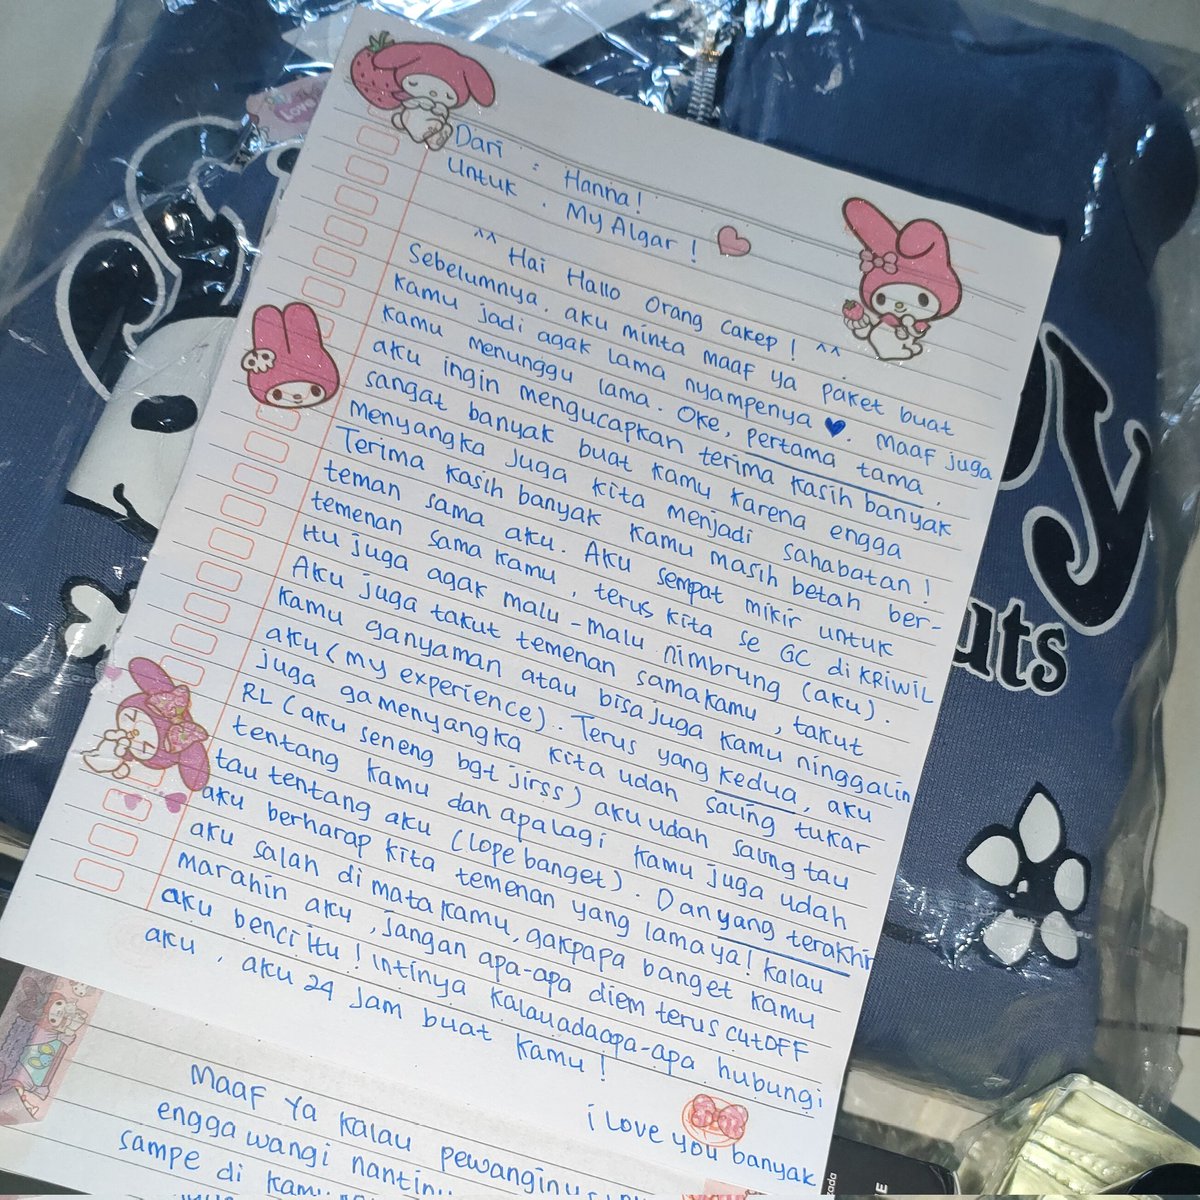 Dari : Hanna!
Untuk . My Algar !
^^ Hai Hallo Orang Cakep ! ^^
Sebelumnya. aku minta maaf ya paket buat
kamu jadi agak lama nyampenya ♥. Maaf juga
kamu menunggu lama. Oke, pertama tama.
aku ingin mengucapkan terima kasih banyak
sangat banyak buat kamu karena engga
menyangka juga kita menjadi sahabatan!
Terima kasih banyak kamu masih betah ber-
teman sama aku. Aku sempat mikir untuk
temenan sama kamu, terus kita se GC di KRIWIL
itu juga agak malu-malu nimbrung (aku).
Aku juga takut temenan samakamu, takut
kamu ganyaman atau bisa juga kamu ninggalin
aku (my experience). Terus yang kedua, aku
juga gamenyangka kita udah saling tukar
RL (aku seneng bgt jirss) aku udah saling tau
tentang kamu dan apalagi kamu juga udah
tau tentang aku (lope banget). Dan yang terakhir
aku berharap kita temenan yang lama ya! kalau
aku salah di mata kamu, gakpapa banget kamu
marahin aku, jangan apa-apa diem terus cutOFF
aku benci itu! intinya kalau ada apa-apa hubungi
aku, aku 24 Jam buat kamu!
i Love you banyak
Maaf Ya kalau pewanginya
engga wangi nantinya
sampe di kamu
Love
y
uts